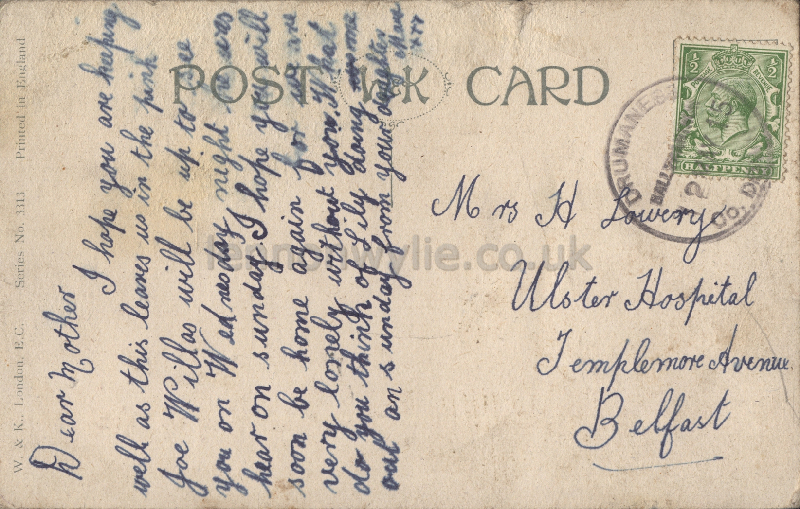 POST W&K CARD
W. & K., London, E.C. Series No. 3313 Printed in England
Dear Mother
I hope you are keeping
well as this leaves us in the pink
Joe Willas will be up to see
you on Wednesday night he was
hear on sunday I hope you will
soon be home again for we are
very lonely without you What
do you think of Lily doing
out on sunday from your daughter
xxx
½ ½
POSTAGE REVENUE
HALFPENNY
DRUMANESS
Co. DOWN
Mrs H Lowery
Ulster Hospital
Templemore Avenue
Belfast
fennonwylie.co.uk